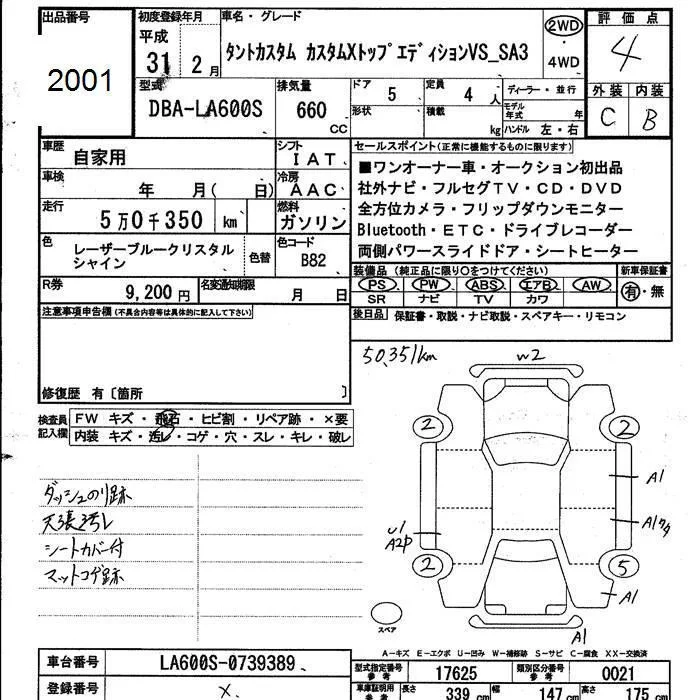 出品番号
2001
初度登録年月
平成
31年 2月
車名・グレード
タントカスタム カスタムXトップエディションVS_SA3
2WD
・
4WD
評価点
4
外装 内装
C B
型式
DBA-LA600S
排気量
660
CC
ドア
5
形状
定員
4 人
積載
kg
ディーラー・並行
モデル年式 年
ハンドル 左・右
車歴
自家用
シフト
IAT
車検
年 月( 日)
冷房
AAC
走行
5万0千350 km
燃料
ガソリン
色
レーザーブルークリスタル
シャイン
色替
色コード
B82
R券
9,200円
名変通知期限
月 日
セールスポイント(正常に機能するものに限ります)
■ワンオーナー車・オークション初出品
社外ナビ・フルセグTV・CD・DVD
全方位カメラ・フリップダウンモニター
Bluetooth・ETC・ドライブレコーダー
両側パワースライドドア・シートヒーター
装備品 (純正品に限り○をつけてください)
新車保証書
PS PW ABS エアB AW
SR ナビ TV カワ
有・無
後日品 保証書・取説・ナビ取説・スペアキー・リモコン
注意事項申告欄(不具合内容等は具体的に記入して下さい)
修復歴 有〔箇所 〕
検査員
記入欄
FW キズ・飛石・ヒビ割・リペア跡・×要
内装 キズ・汚レ・コゲ・穴・スレ・キレ・破レ
ダッシュのり跡
天張汚レ
シートカバー付
マットコゲ跡
50,351km
W2
2 2
A1
U1
A2P
2 5
A1
A1
スペア
A－キズ E－エクボ U－凹み W－補修跡 S－サビ C－腐食 XX－交換済
車台番号
LA600S-0739389
登録番号
×
型式指定番号
参考
17625
類別区分番号
参考
0021
車庫証明用
参考
長さ
339 cm
幅
147 cm
高さ
175 cm